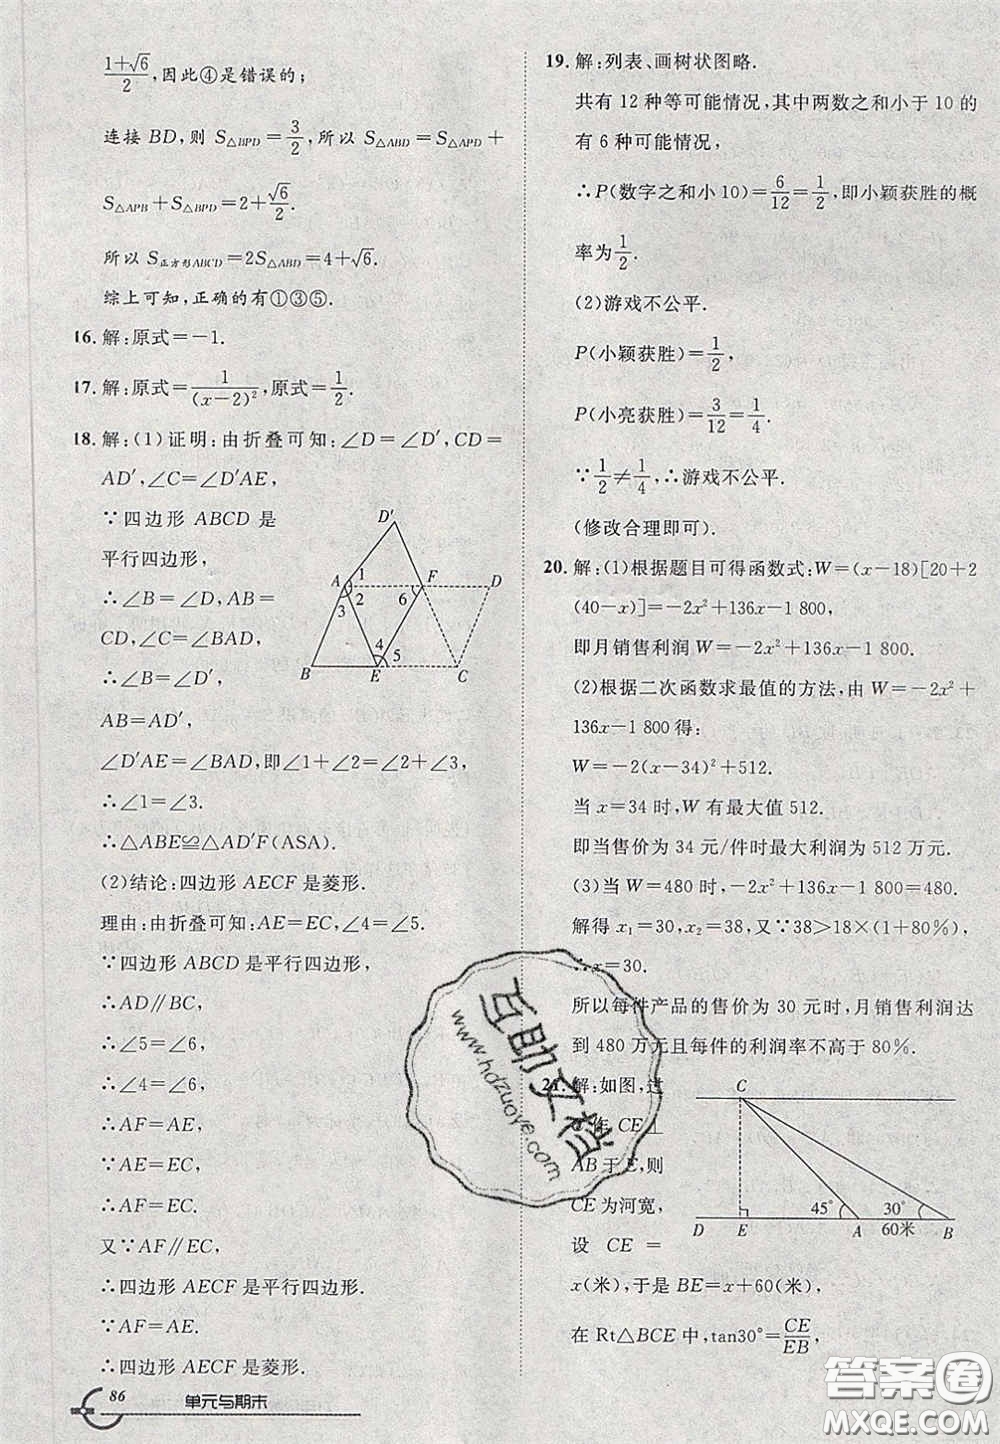 (1+√6)/2,因此④是错误的;
连接 BD,则 S△BPD=3/2,所以 S△ABD=S△APD+
S△APB+S△BPD=2+√6/2.
所以 S正方形ABCD=2S△ABD=4+√6.
综上可知,正确的有①③⑤.
16. 解:原式=-1.
17. 解:原式=1/(x-2)²,原式=1/2.
18. 解:(1)证明:由折叠可知:∠D=∠D′,CD=
AD′,∠C=∠D′AE,
∵四边形 ABCD 是
平行四边形,
∴∠B=∠D,AB=
CD,∠C=∠BAD,
∴∠B=∠D′,
AB=AD′,
∠D′AE=∠BAD,即∠1+∠2=∠2+∠3,
∴∠1=∠3.
∴△ABE≌△AD′F(ASA).
(2)结论:四边形 AECF 是菱形.
理由:由折叠可知:AE=EC,∠4=∠5.
∵四边形 ABCD 是平行四边形,
∴AD∥BC,
∴∠5=∠6,
∴∠4=∠6,
∴AF=AE.
∵AE=EC,
∴AF=EC.
又∵AF∥EC,
∴四边形 AECF 是平行四边形.
∵AF=AE.
∴四边形 AECF 是菱形.
D′
A 1 F D
3 2 6
4 5
B E C
86 单元与期末
19. 解:列表、画树状图略.
共有 12 种等可能情况,其中两数之和小于 10 的
有 6 种可能情况,
∴P(数字之和小10)=6/12=1/2,即小颖获胜的概
率为1/2.
(2)游戏不公平.
P(小颖获胜)=1/2,
P(小亮获胜)=3/12=1/4.
∵1/2≠1/4,∴游戏不公平.
(修改合理即可).
20. 解:(1)根据题目可得函数式:W=(x-18)[20+2
(40-x)]=-2x²+136x-1 800,
即月销售利润 W=-2x²+136x-1 800.
(2)根据二次函数求最值的方法,由 W=-2x²+
136x-1 800得:
W=-2(x-34)²+512.
当 x=34 时,W 有最大值 512.
即当售价为 34 元/件时最大利润为 512 万元.
(3)当 W=480 时,-2x²+136x-1 800=480.
解得 x₁=30,x₂=38,又∵38>18×(1+80%),
∴x=30.
所以每件产品的售价为 30 元时,月销售利润达
到 480 万元且每件的利润率不高于 80%.
21. 解:如图,过
作 CE⊥
AB 于 E,则
CE 为河宽,
设 CE=
x(米),于是 BE=x+60(米),
在 Rt△BCE 中,tan30°=CE/EB,
C
45° 30°
D E A 60米 B
互助文档
www.hdzuoye.com
答案圈
MXQE.COM